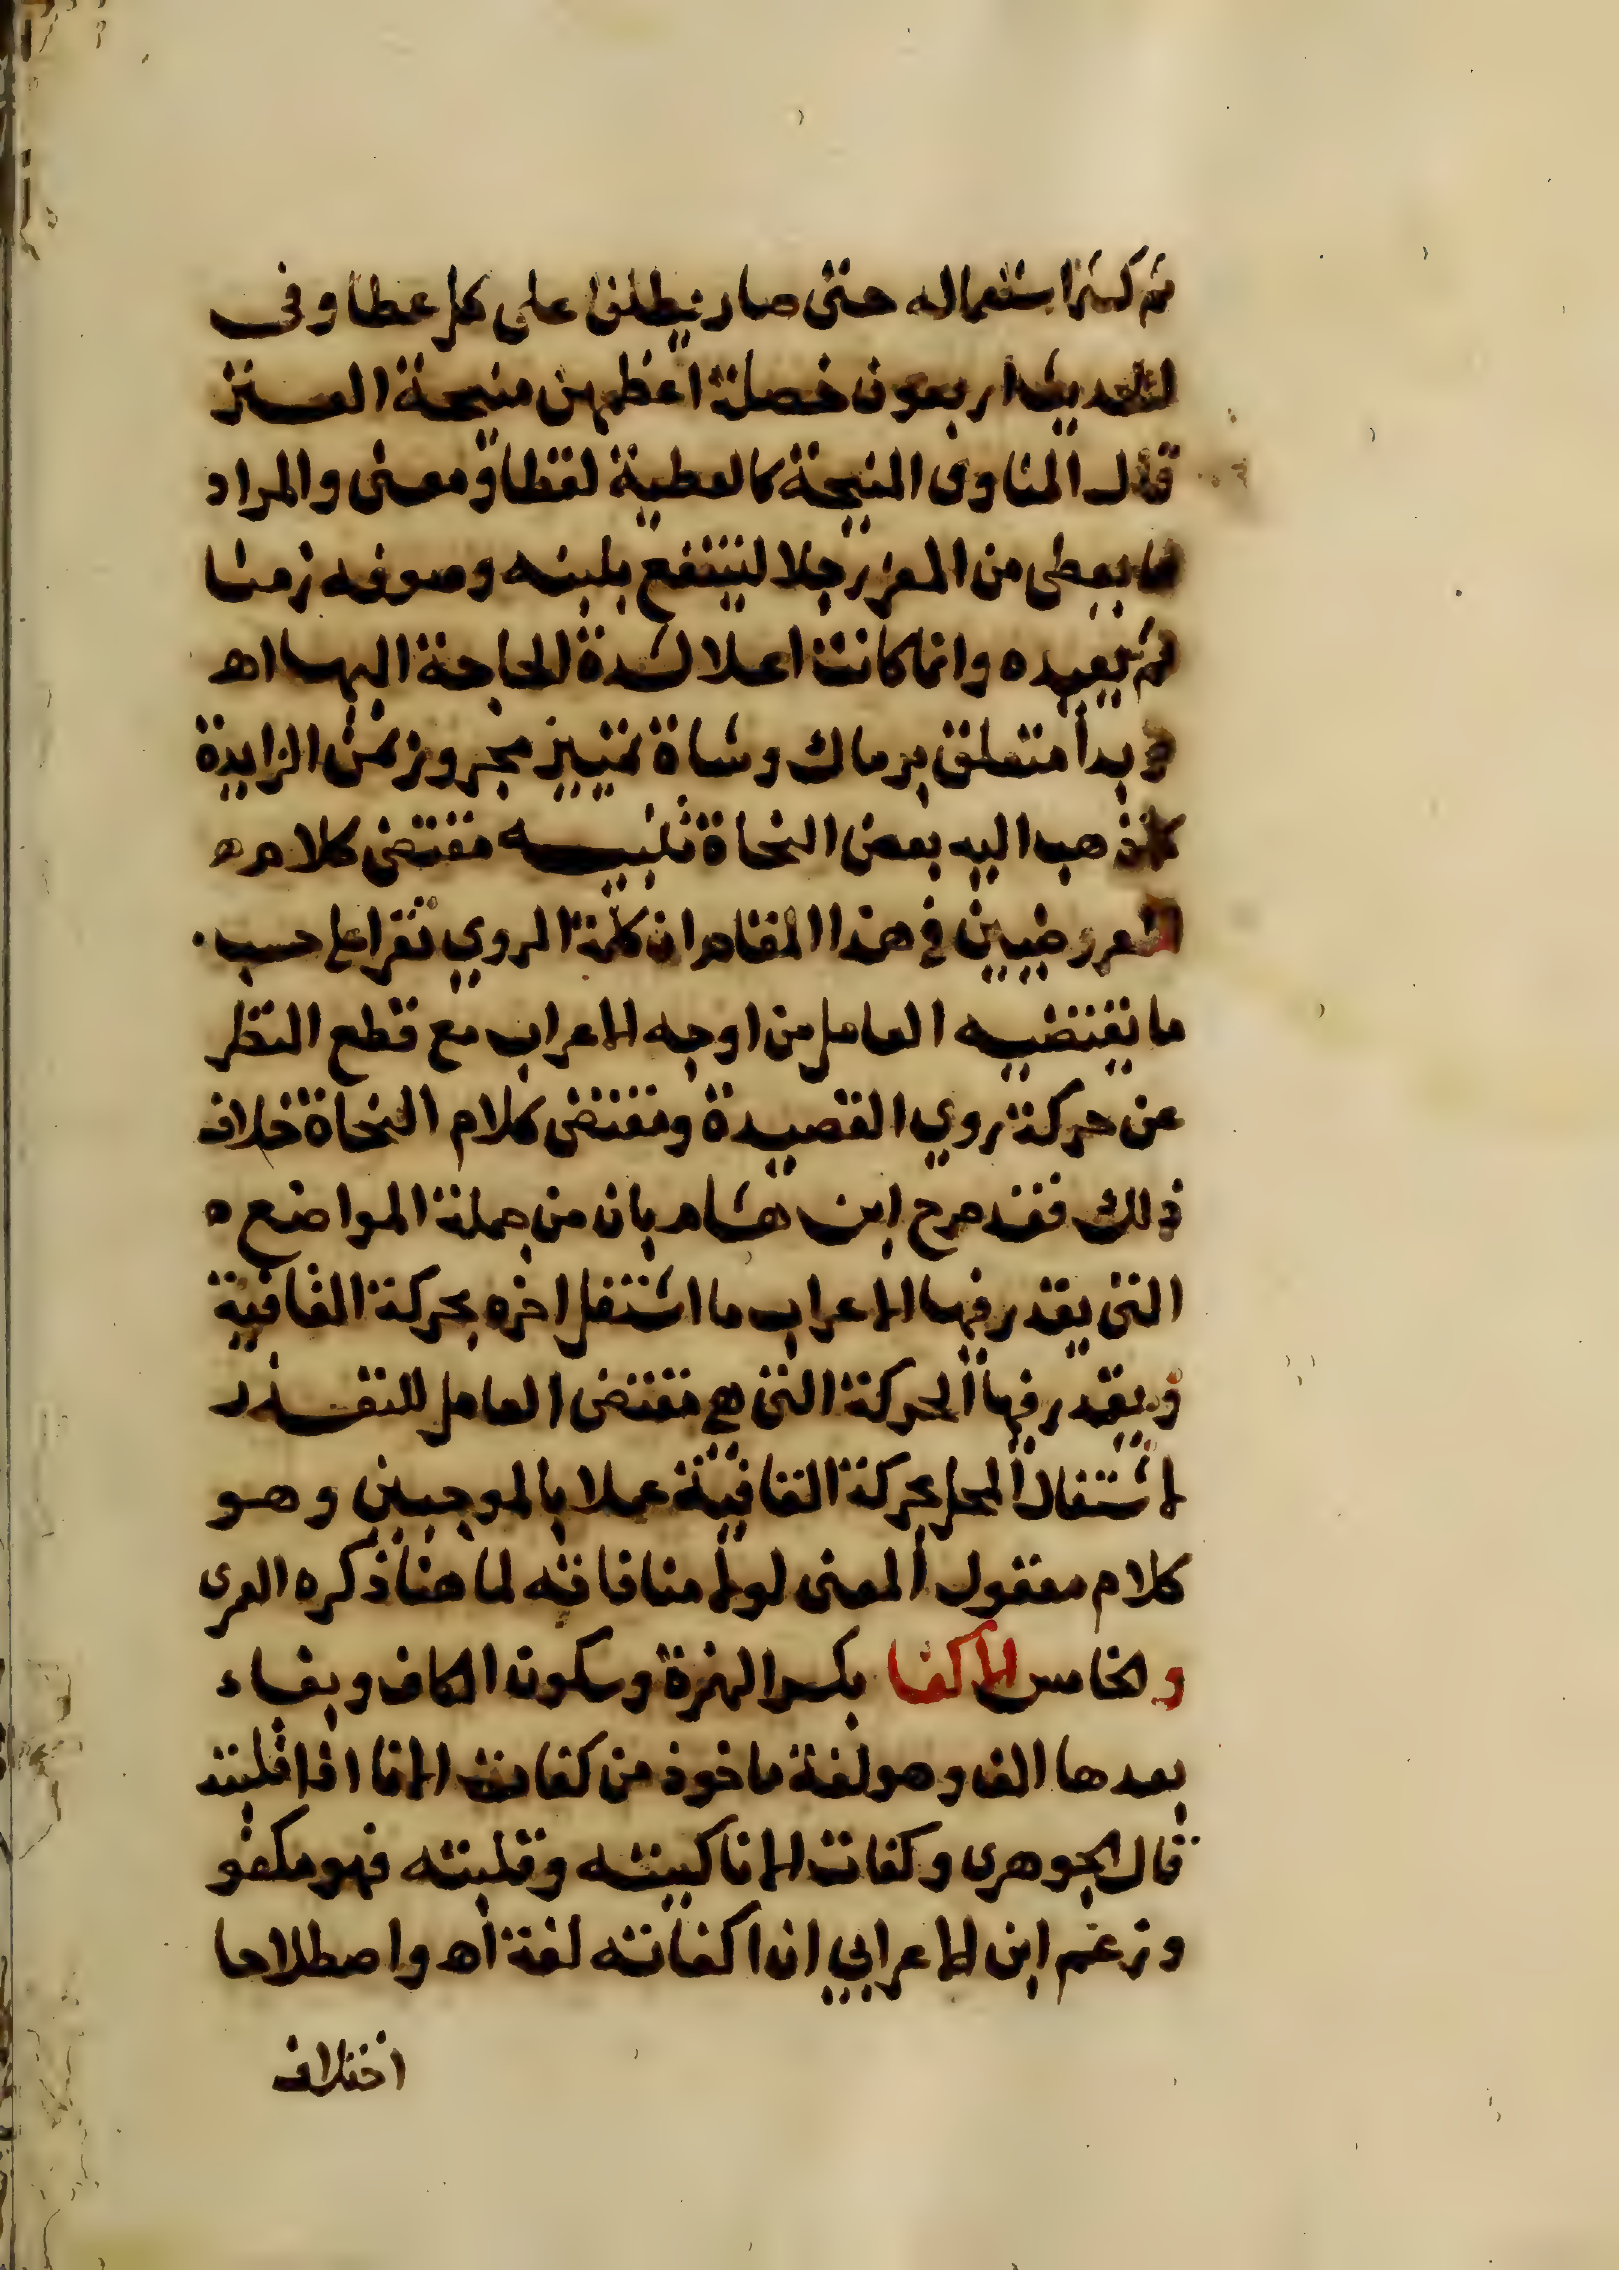 ثم كثر استعماله حتى صار يطلق على كل عطا وفى
الحديث اربعون خصلة اعظهن منيحة العنز
قال المناوى المنيحة كالعطية لفظا ومعنى والمراد
ما يعطى من المعز رجلا لينتفع بلبنه وصوفه زمنا
ثم يعيده وانما كانت اعلا لشدة الحاجة اليها اه
وبدأ متعلق برماك وشاة تمييز مجرور بمن الزايدة
كما ذهب اليه بعض النحاة تنبيه مقتضى كلام
العروضيين في هذا المقام ان كلمة الروي تقرا على حسب
ما تقتضيه العامل من اوجه الاعراب مع قطع النظر
عن حركة روي القصيدة ومقتضى كلام النحاة خلاف
ذلك فقد صرح ابن هشام بان من جملة المواضع
التى يقدر فيها الاعراب ما اشتغل اخره بحركة القافية
ويقدر فيها الحركة التى هي مقتضى العامل للتعذر
لاشتغال المحل بحركة القافية عملا بالموجبين وهو
كلام معقول المعنى لولا منافاته لما هنا ذكره العرى
والخامس الاكفا بكسر الهمزة وسكون الكاف وبفاء
بعدها الف وهو لغة ماخوذ من كفات الانا اذا قلبته
قال الجوهرى وكفات الانا كببته وقلبته فهو مكفو
وزعم ابن الاعرابي ان اكفاته لغة اه واصطلاحا
اختلاف